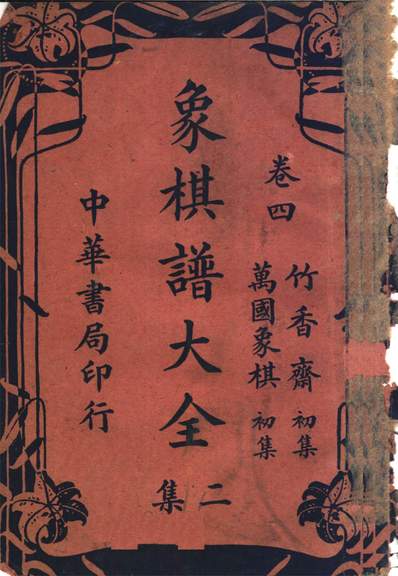 卷四
竹香齋初集
萬國象棋初集
象棋譜大全
二集
中華書局印行